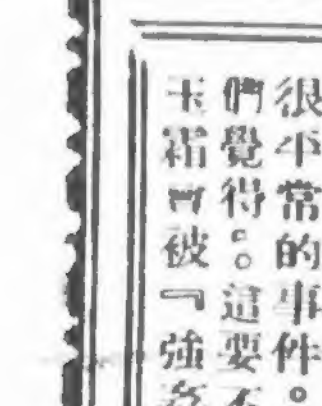 很平常的事件。
們覺得。這要不
玉霜曾被『強